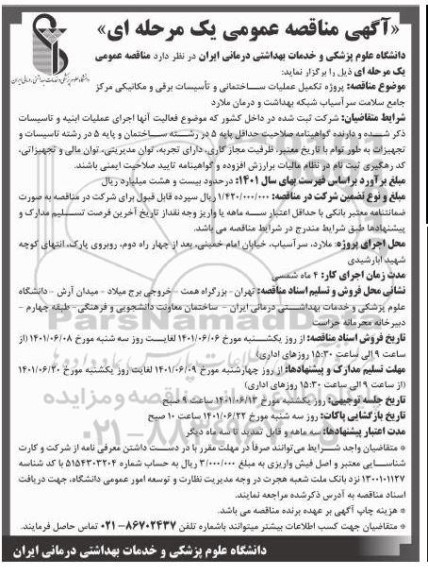 «آگهی مناقصه عمومی یک مرحله ای»
دانشگاه علوم پزشکی و خدمات بهداشتی درمانی ایران در نظر دارد مناقصه عمومی
یک مرحله ای ذیل را برگزار نماید:
موضوع مناقصه: پروژه تکمیل عملیات ساختمانی و تأسیسات برقی و مکانیکی مرکز
جامع سلامت سرآسیاب شبکه بهداشت و درمان ملارد
شرایط متقاضیان: شرکت ثبت شده در داخل کشور که موضوع فعالیت آنها اجرای عملیات ابنیه و تاسیسات
ذکر شده و دارنده گواهینامه صلاحیت حداقل پایه ۵ در رشته ساختمان و پایه ۵ در رشته تاسیسات و
تجهیزات به طور توام با تاریخ معتبر، ظرفیت مجاز کاری، دارای تجربه، توان مدیریتی، توان مالی و تجهیزاتی،
کد رهگیری ثبت نام در نظام مالیات برارزش افزوده و گواهینامه تایید صلاحیت ایمنی باشند.
مبلغ برآورد براساس فهرست بهای سال ۱۴۰۱: درحدود بیست و هشت میلیارد ریال
مبلغ و نوع تضمین شرکت در مناقصه: ۱/۴۲۰/۰۰۰/۰۰۰ ریال سپرده قابل قبول برای شرکت در مناقصه به صورت
ضمانتنامه معتبر بانکی با حداقل اعتبار سه ماهه یا واریز وجه نقد از تاریخ آخرین فرصت تسلیم مدارک و
پیشنهادها طبق شرایط مندرج در شرایط مناقصه می باشد.
محل اجرای پروژه: ملارد، سرآسیاب، خیابان امام خمینی، بعد از چهار راه دوم، روبروی پارک، انتهای کوچه
شهید آبارشیدی
مدت زمان اجرای کار: ۴ ماه شمسی
نشانی محل فروش و تسلیم اسناد مناقصه: تهران - بزرگراه همت - خروجی برج میلاد - میدان آرش - دانشگاه
علوم پزشکی و خدمات بهداشتی درمانی ایران - ساختمان معاونت دانشجویی و فرهنگی- طبقه چهارم -
دبیرخانه محرمانه حراست
تاریخ فروش اسناد مناقصه: از روز یکشنبه مورخ ۱۴۰۱/۰۶/۰۶ لغایت روز سه شنبه مورخ ۱۴۰۱/۰۶/۰۸ (از
ساعت ۹ الی ساعت ۱۵:۳۰ روزهای اداری)
مهلت تسلیم مدارک و پیشنهادها: از روز چهارشنبه مورخ ۱۴۰۱/۰۶/۰۹ لغایت روز یکشنبه مورخ ۱۴۰۱/۰۶/۲۰
(از ساعت ۹ الی ساعت ۱۵:۳۰ روزهای اداری)
تاریخ جلسه توجیهی: روز یکشنبه مورخ ۱۴۰۱/۰۶/۱۳ ساعت ۹ صبح
تاریخ بازگشایی پاکات: روز سه شنبه مورخ ۱۴۰۱/۰۶/۲۲ ساعت ۱۰ صبح
مدت اعتبار پیشنهادها: سه ماهه و قابل تمدید تا سه ماه دیگر
* متقاضیان واجد شرایط می‌توانند صرفاً در مهلت مقرر با در دست داشتن معرفی نامه از شرکت و کارت
شناسایی معتبر و اصل فیش واریزی به مبلغ ۳/۰۰۰/۰۰۰ ریال به حساب شماره ۵۱۵۴۳۰۳۲۰۴ با کد شناسه
۱۳۰۰۱۰۱۱۲۷ نزد بانک ملت شعبه هجرت در وجه مدیریت نظارت و توسعه امور عمومی دانشگاه، جهت دریافت
اسناد مناقصه به آدرس ذکرشده مراجعه نمایند.
* هزینه چاپ آگهی بر عهده برنده مناقصه می باشد.
* متقاضیان جهت کسب اطلاعات بیشتر میتوانند باشماره تلفن ۸۶۷۰۲۴۳۷-۰۲۱ تماس حاصل فرمایند.
دانشگاه علوم پزشکی و خدمات بهداشتی درمانی ایران